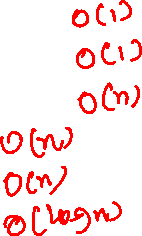 O(1)
O(1)
O(n)
O(n)
O(n)
O(logn)